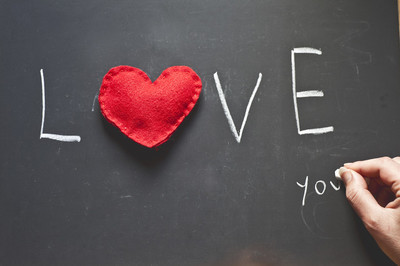 L VE
you